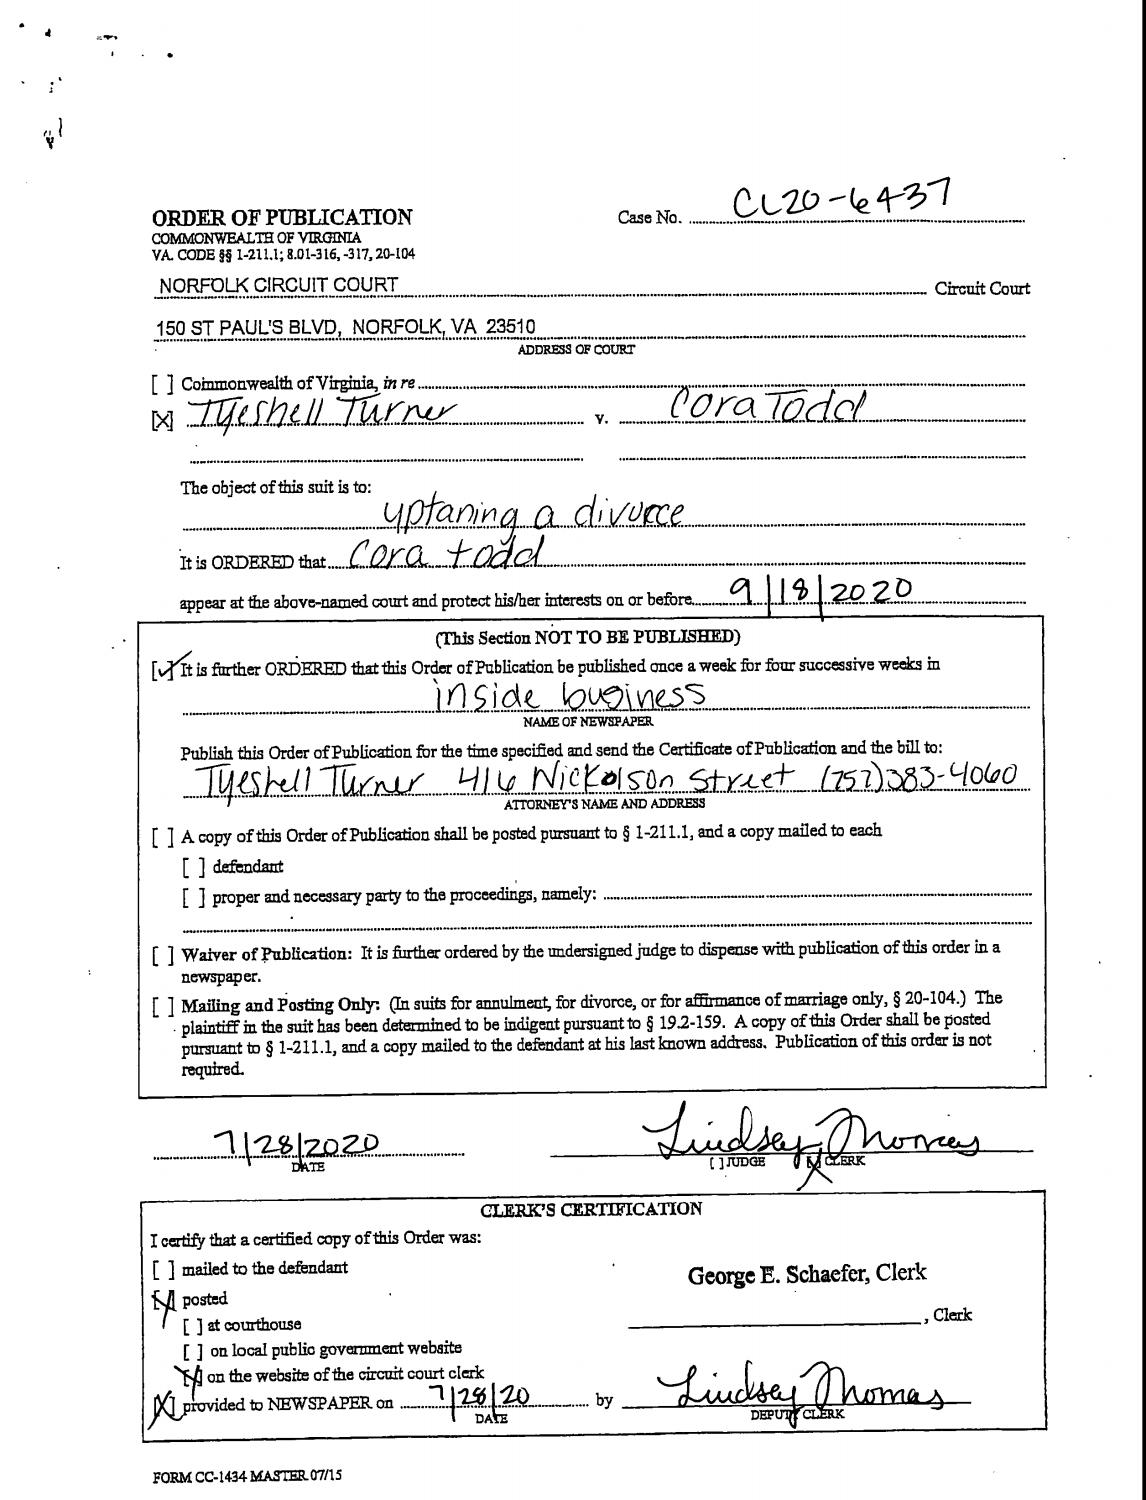 Case No. CL20-6437
ORDER OF PUBLICATION
COMMONWEALTH OF VIRGINIA
VA. CODE §§ 1-211.1; 8.01-316, -317, 20-104
NORFOLK CIRCUIT COURT Circuit Court
150 ST PAUL'S BLVD, NORFOLK, VA 23510
ADDRESS OF COURT
[ ] Commonwealth of Virginia, in re
[X] Tyeshell Turner v. Cora Todd
The object of this suit is to:
uptaning a divorce
It is ORDERED that Cora todd
appear at the above-named court and protect his/her interests on or before 9|18|2020
(This Section NOT TO BE PUBLISHED)
[✓] It is further ORDERED that this Order of Publication be published once a week for four successive weeks in
inside business
NAME OF NEWSPAPER
Publish this Order of Publication for the time specified and send the Certificate of Publication and the bill to:
Tyeshell Turner 416 Nickolson Street (757)383-4060
ATTORNEY'S NAME AND ADDRESS
[ ] A copy of this Order of Publication shall be posted pursuant to § 1-211.1, and a copy mailed to each
[ ] defendant
[ ] proper and necessary party to the proceedings, namely:
[ ] Waiver of Publication: It is further ordered by the undersigned judge to dispense with publication of this order in a
newspaper.
[ ] Mailing and Posting Only: (In suits for annulment, for divorce, or for affirmance of marriage only, § 20-104.) The
plaintiff in the suit has been determined to be indigent pursuant to § 19.2-159. A copy of this Order shall be posted
pursuant to § 1-211.1, and a copy mailed to the defendant at his last known address. Publication of this order is not
required.
7|28|2020 Lindsey Thomas
DATE [ ] JUDGE [X] CLERK
CLERK'S CERTIFICATION
I certify that a certified copy of this Order was:
[ ] mailed to the defendant
George E. Schaefer, Clerk
[X] posted
, Clerk
[ ] at courthouse
[ ] on local public government website
[X] on the website of the circuit court clerk
[X] provided to NEWSPAPER on 7|28|20 by Lindsey Thomas
DATE DEPUTY CLERK
FORM CC-1434 MASTER 07/15